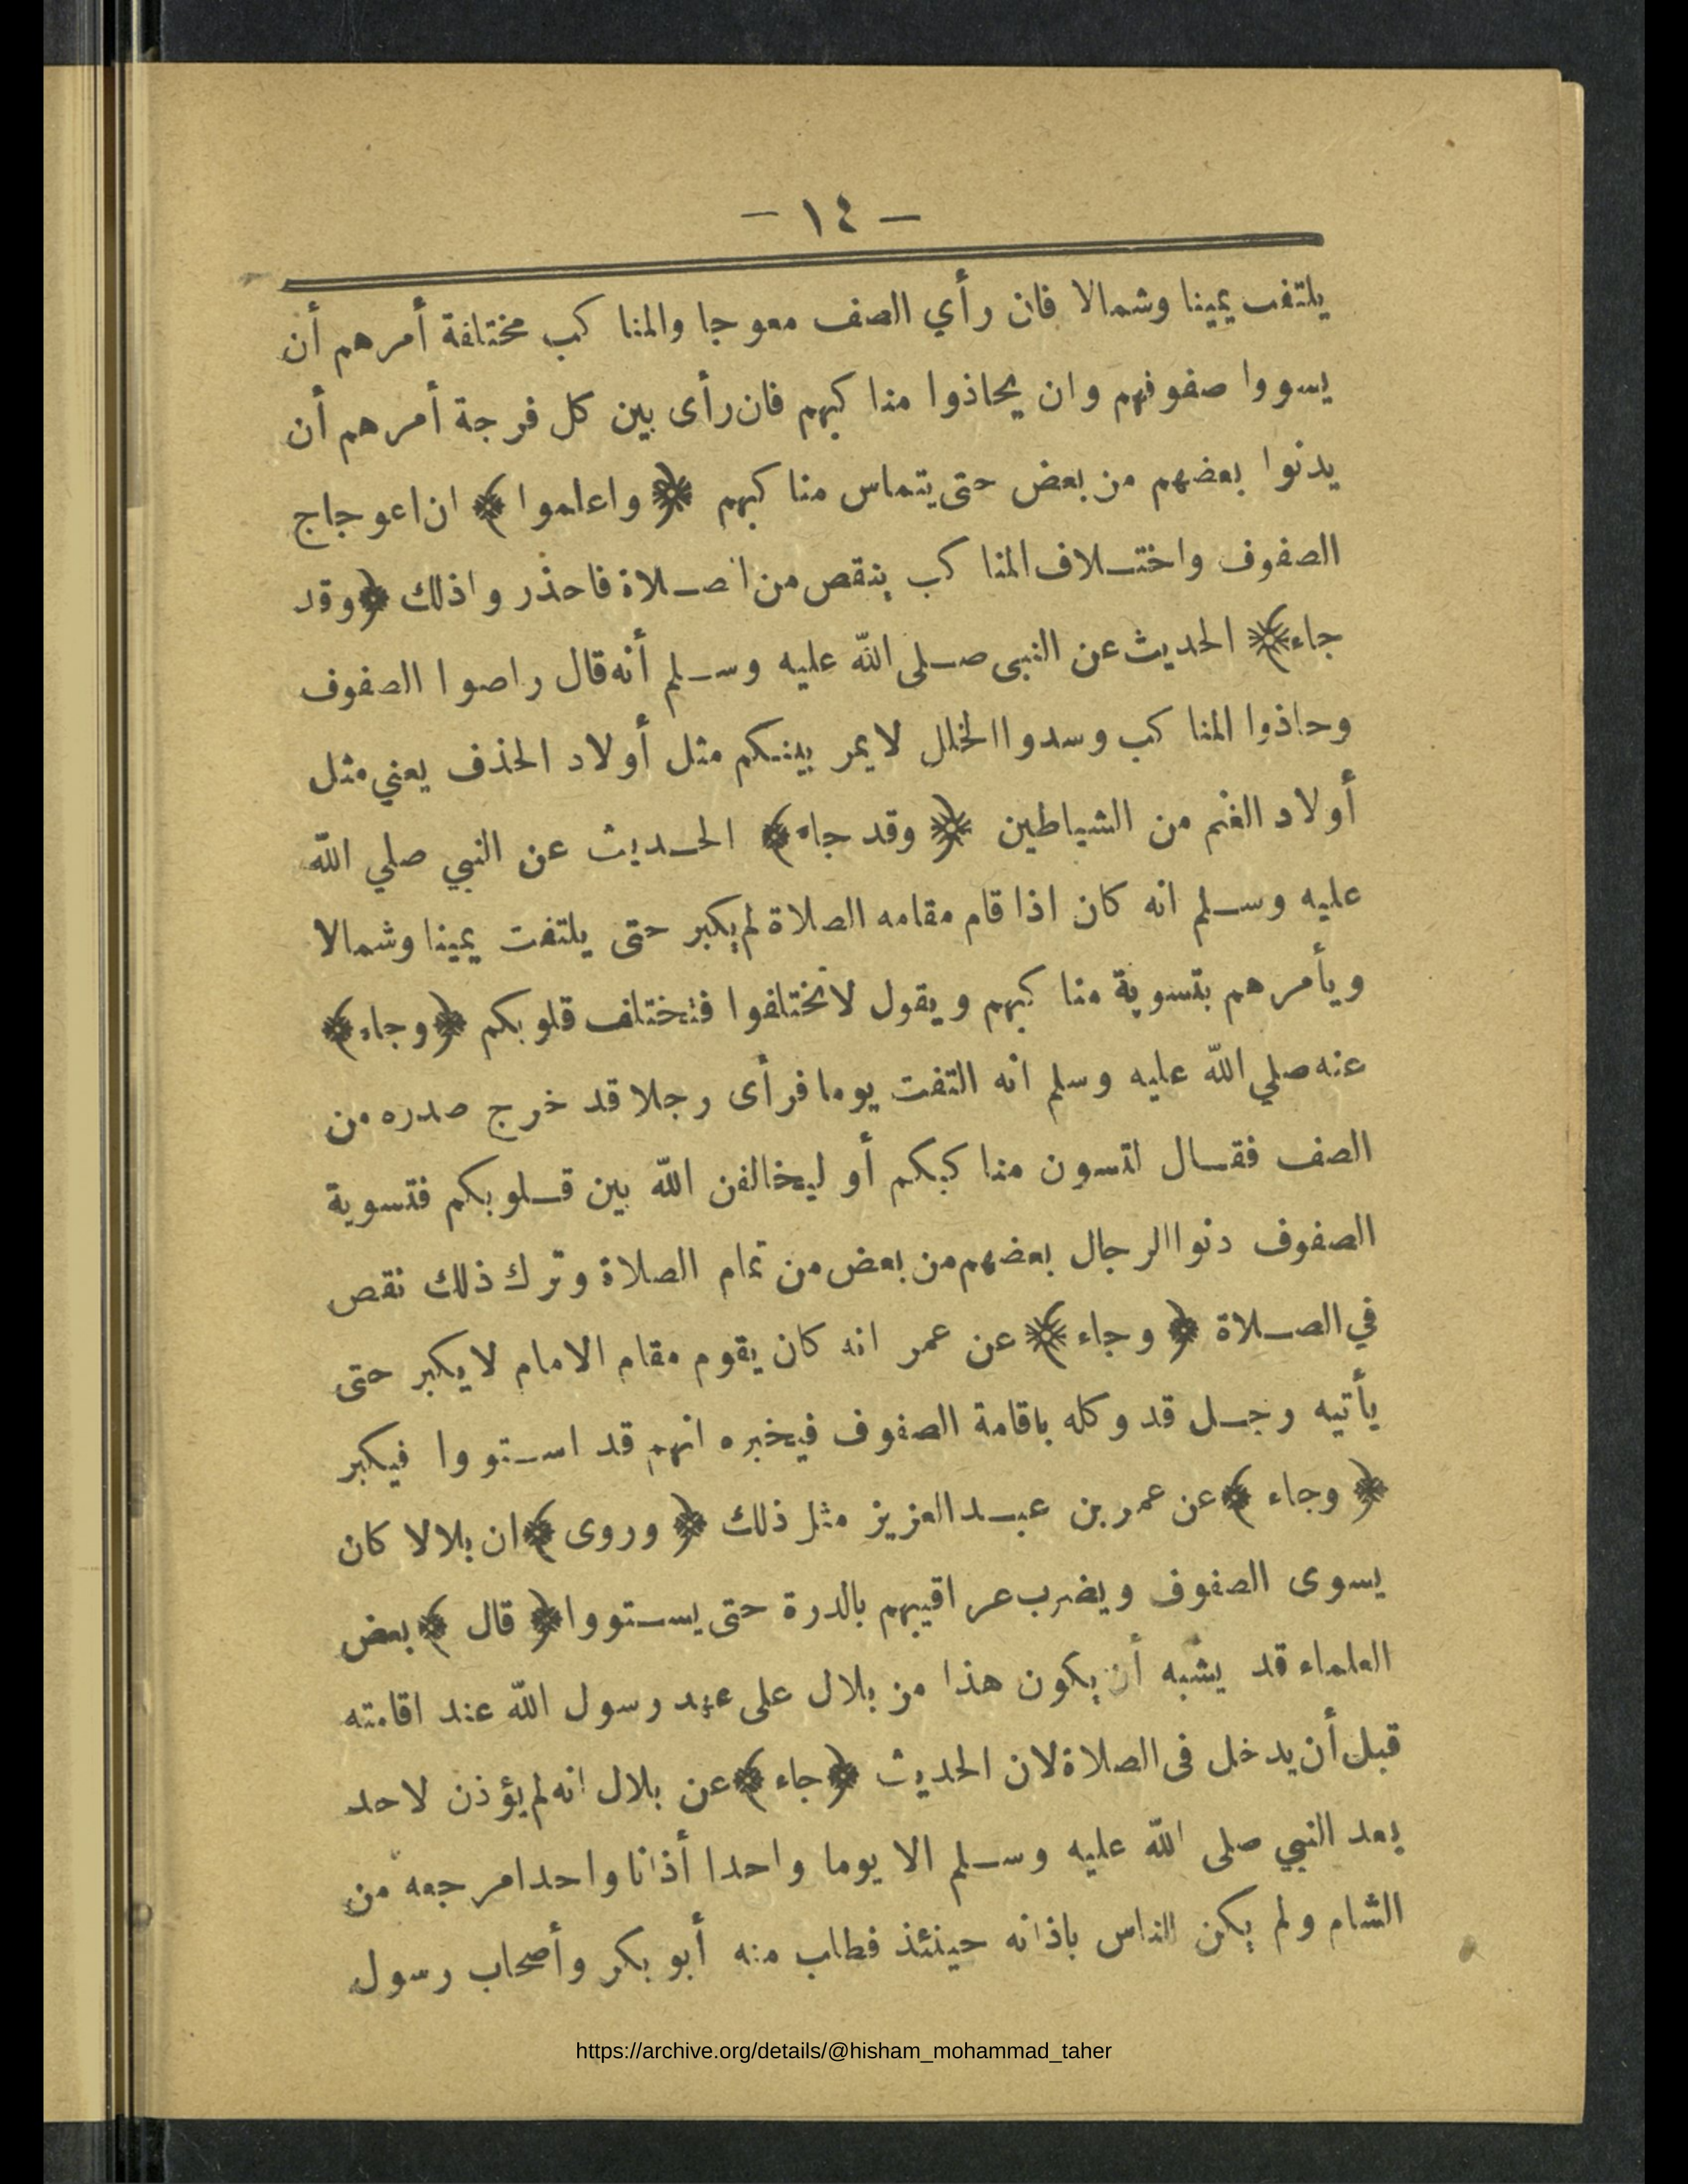 — ١٤ —
يلتفت يمينا وشمالا فان رأي الصف معوجا والمناكب مختلفة أمرهم أن
يسووا صفوفهم وان يحاذوا مناكبهم فان رأى بين كل فرجة أمرهم أن
يدنوا بعضهم من بعض حتى يتماس مناكبهم ﴿ واعلموا ﴾ ان اعوجاج
الصفوف واختلاف المناكب ينقص من الصلاة فاحذروا ذلك ﴿ وقد
جاء ﴾ الحديث عن النبى صلى الله عليه وسلم أنه قال راصوا الصفوف
وحاذوا المناكب وسدوا الخلل لا يمر بينكم مثل أولاد الحذف يعني مثل
أولاد الغنم من الشياطين ﴿ وقد جاء ﴾ الحديث عن النبي صلي الله
عليه وسلم انه كان اذا قام مقامه الصلاة لم يكبر حتى يلتفت يمينا وشمالا
ويأمرهم بتسوية مناكبهم ويقول لا تختلفوا فتختلف قلوبكم ﴿ وجاء ﴾
عنه صلي الله عليه وسلم انه التفت يوما فرأى رجلا قد خرج صدره من
الصف فقال لتسون مناكبكم أو ليخالفن الله بين قلوبكم فتسوية
الصفوف دنوا الرجال بعضهم من بعض من تمام الصلاة وترك ذلك نقص
في الصلاة ﴿ وجاء ﴾ عن عمر انه كان يقوم مقام الامام لا يكبر حتى
يأتيه وجل قد وكله باقامة الصفوف فيخبره انهم قد استووا فيكبر
﴿ وجاء ﴾ عن عمر بن عبد العزيز مثل ذلك ﴿ وروى ﴾ ان بلالا كان
يسوى الصفوف ويضرب عراقيبهم بالدرة حتى يستووا ﴿ قال ﴾ بعض
العلماء قد يشبه أن يكون هذا من بلال على عهد رسول الله عند اقامته
قبل أن يدخل فى الصلاة لان الحديث ﴿ جاء ﴾ عن بلال انه لم يؤذن لاحد
بعد النبي صلى الله عليه وسلم الا يوما واحدا أذانا واحدا مرجعه من
الشام ولم يكن الناس باذانه حينئذ فطلب منه أبو بكر وأصحاب رسول
https://archive.org/details/@hisham_mohammad_taher